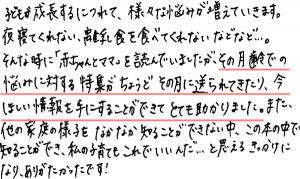 子どもが成長するにつれて、様々な悩みが増えていきます。
夜寝てくれない、離乳食を食べてくれないなどなど…。
そんな時に「赤ちゃんとママ」を読んでいましたが、その月齢での
悩みに対する特集がちょうどその月に送られてきたり、今
ほしい情報を手にすることができてとても助かりました。また、
他の家庭の様子をなかなか知ることができない中、この本の中で
知ることができ、私の子育てもこれでいいんだ…と思えるきっかけに
なり、ありがたかったです!